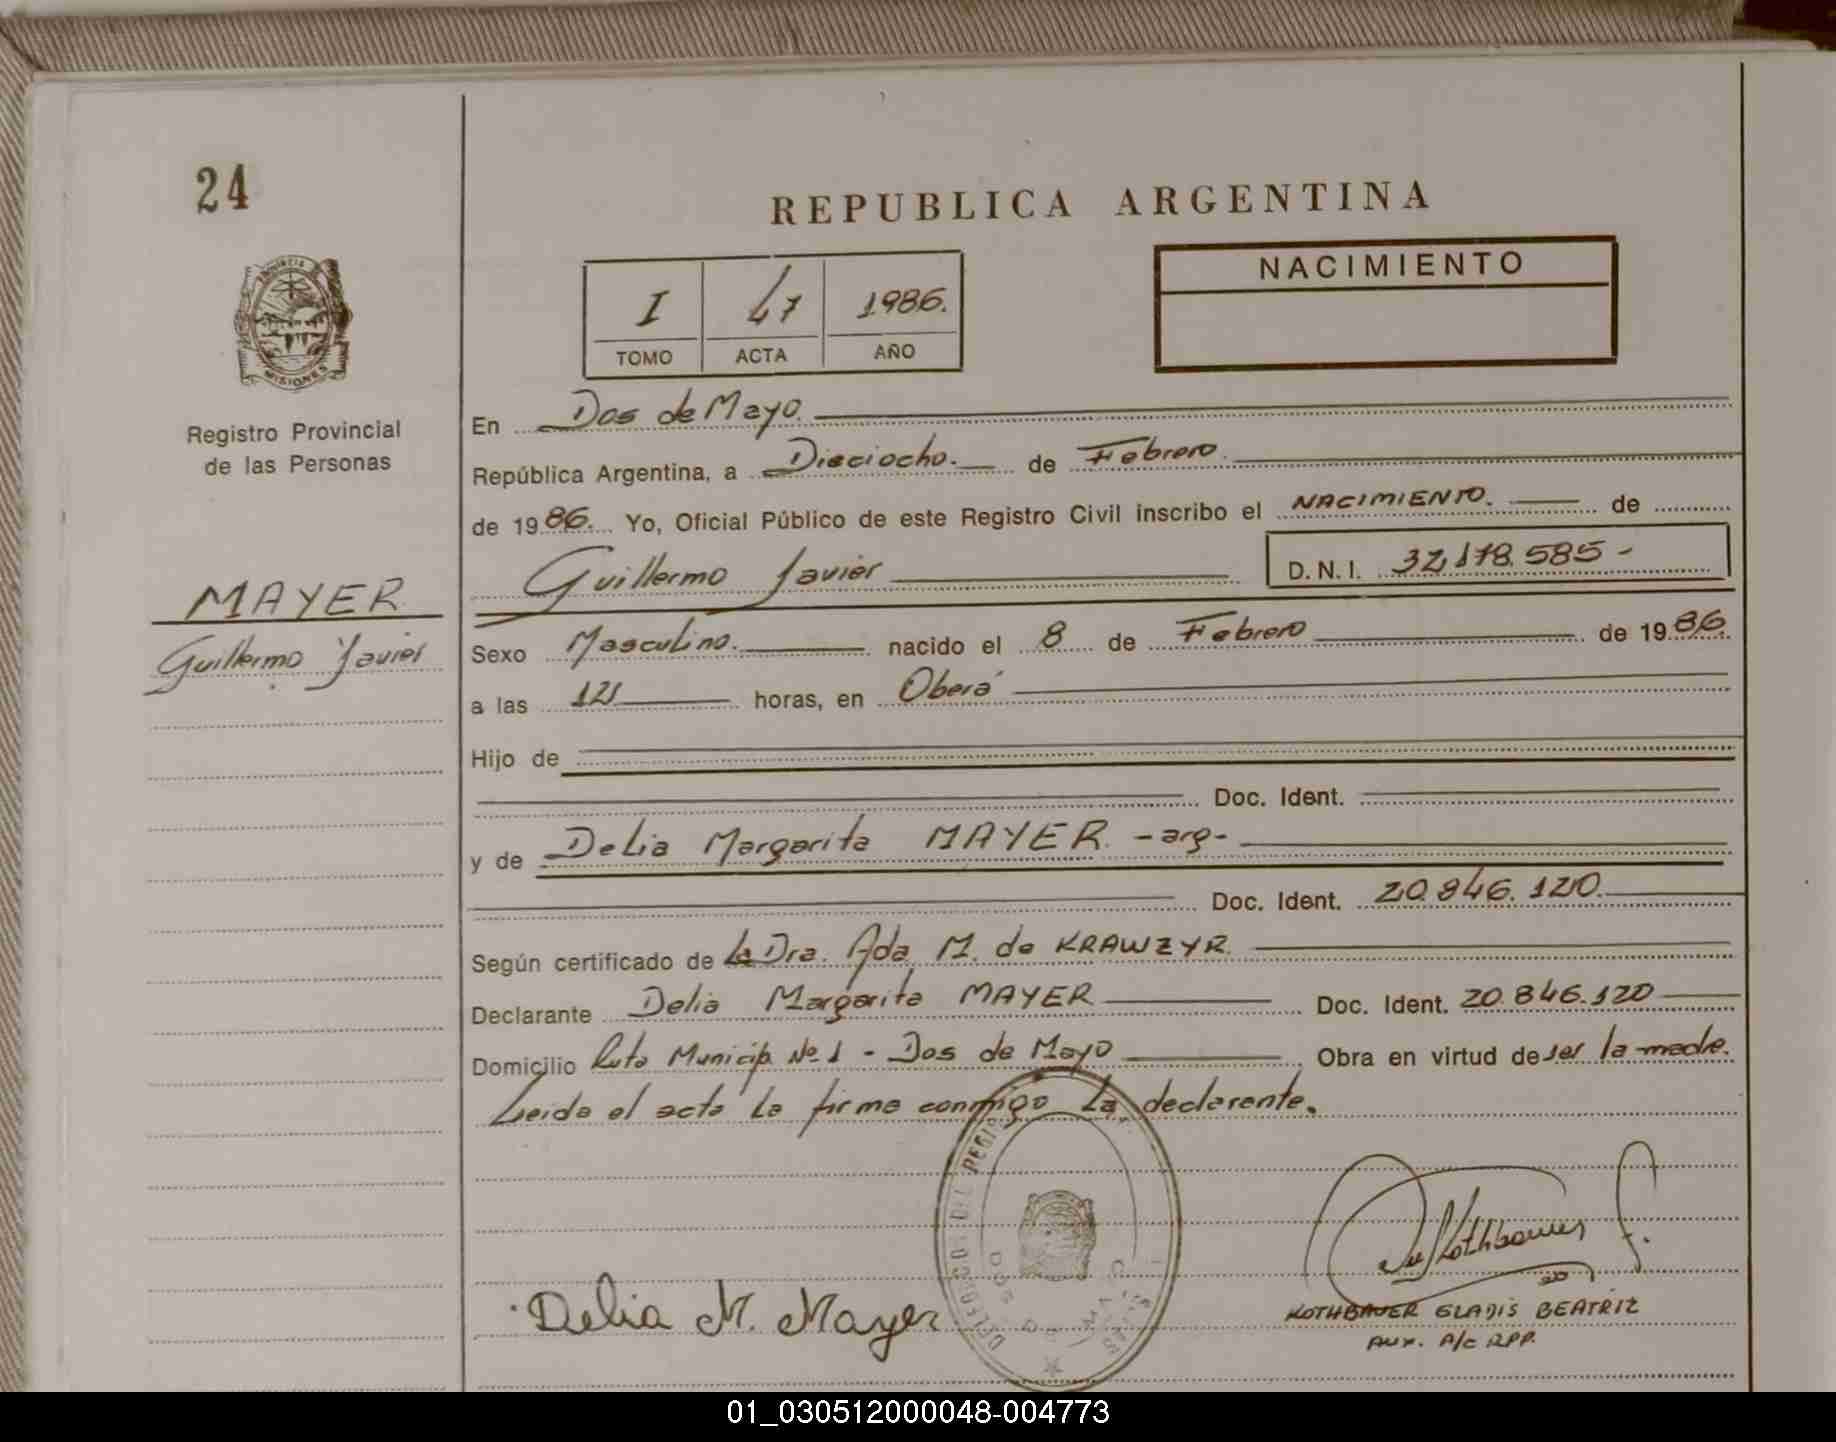 24
REPUBLICA ARGENTINA
NACIMIENTO
I 47 1986.
TOMO ACTA AÑO
PROVINCIA DE
MISIONES
Registro Provincial
de las Personas
MAYER
Guillermo Javier
En Dos de Mayo.
República Argentina, a Dieciocho. de Febrero.
de 1986. Yo, Oficial Público de este Registro Civil inscribo el NACIMIENTO. de
Guillermo Javier D.N.I. 32,178.585-
Sexo Masculino. nacido el 8 de Febrero de 1986.
a las 12 horas, en Oberá
Hijo de
Doc. Ident.
y de Delia Margarita MAYER. -arg-
Doc. Ident. 20.846.120.
Según certificado de la Dra. Ada M. de KRAWZYR.
Declarante Delia Margarita MAYER Doc. Ident. 20.846.120
Domicilio Ruta Municip. Nº 1 - Dos de Mayo Obra en virtud de ser la madre.
Leida el acta la firma conmigo la declarante.
DEL REGIS
DOS DE MAYO
Delia M. Mayer
Kothbauer
KOTHBAUER GLADIS BEATRIZ
AUX. A/C RPP.
01_030512000048-004773